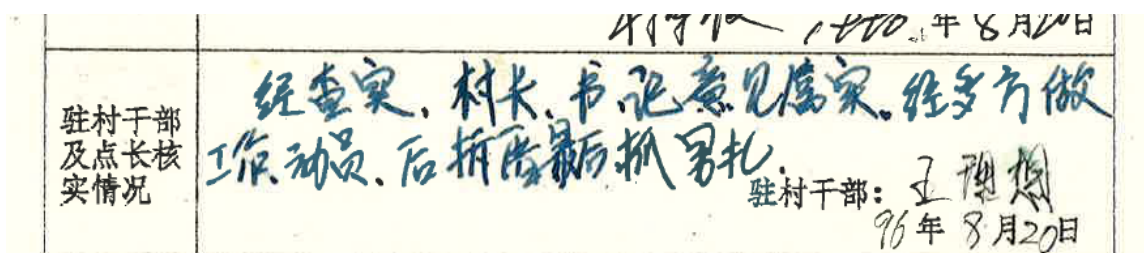 年8月20日
驻村干部
及点长核
实情况
经查实,村长、书记意见属实。经多方做
工作动员、后拆房最后抓男扎.
驻村干部:王理想
96年8月20日